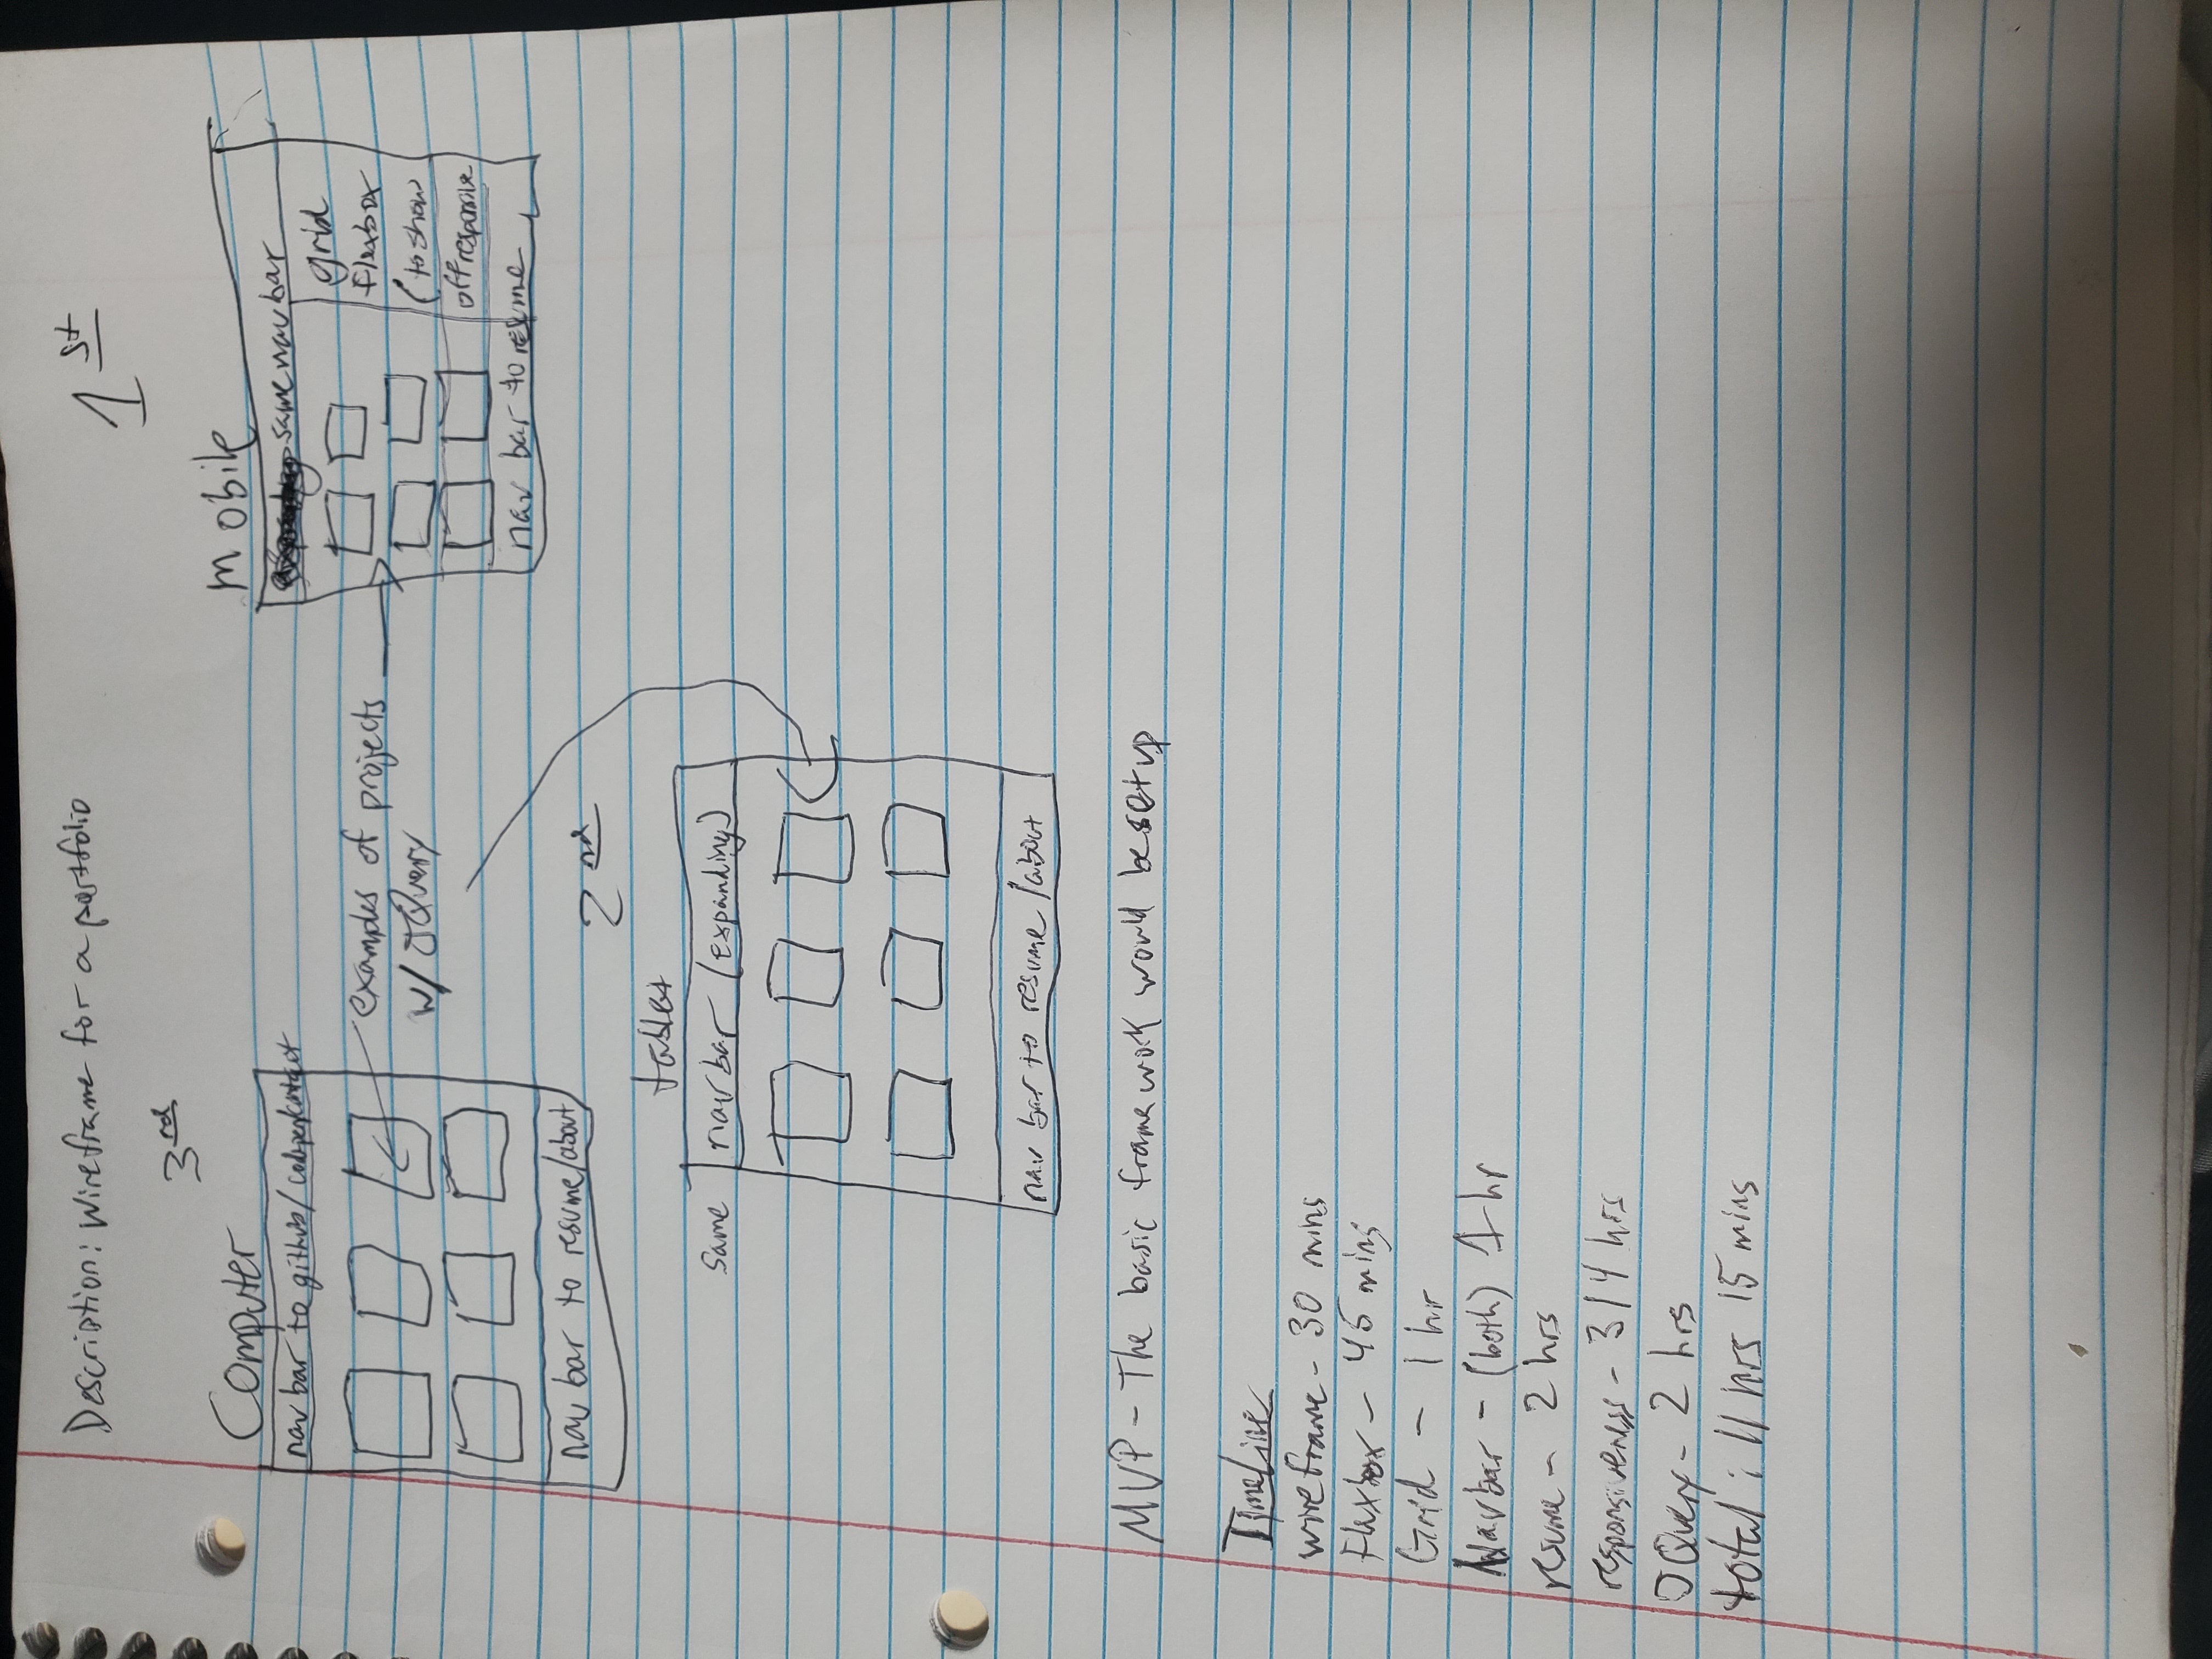 Description: Wireframe for a portfolio
1st
3rd
Computer
nav bar to github/codepen/contact
examples of projects
w/ JQuery
nav bar to resume/about
mobile
same navbar
grid
flexbox
(to show
off responsive
nav bar to resume
2nd
tablet
Same navbar (expanding)
nav bar to resume/about
MVP - The basic framework would be setup
TimeLine
wireframe - 30 mins
Flexbox - 45 mins
Grid - 1 hr
Navbar - (both) 1 hr
resume - 2 hrs
responsiveness - 3/4 hrs
JQuery - 2 hrs
total: 11 hrs 15 mins